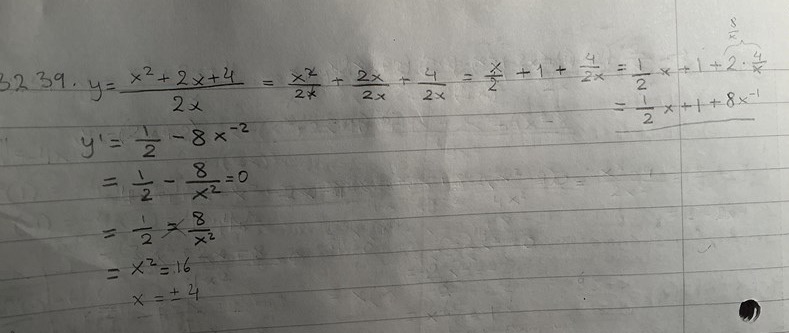 3239. y = (x² + 2x + 4)/(2x) = x²/(2x) + 2x/(2x) + 4/(2x) = x/2 + 1 + 4/(2x) = 1/2 x + 1 + 2 · 4/x
8/x
= 1/2 x + 1 + 8x⁻¹
y' = 1/2 - 8x⁻²
= 1/2 - 8/x² = 0
= 1/2 = 8/x²
= x² = 16
x = ± 4